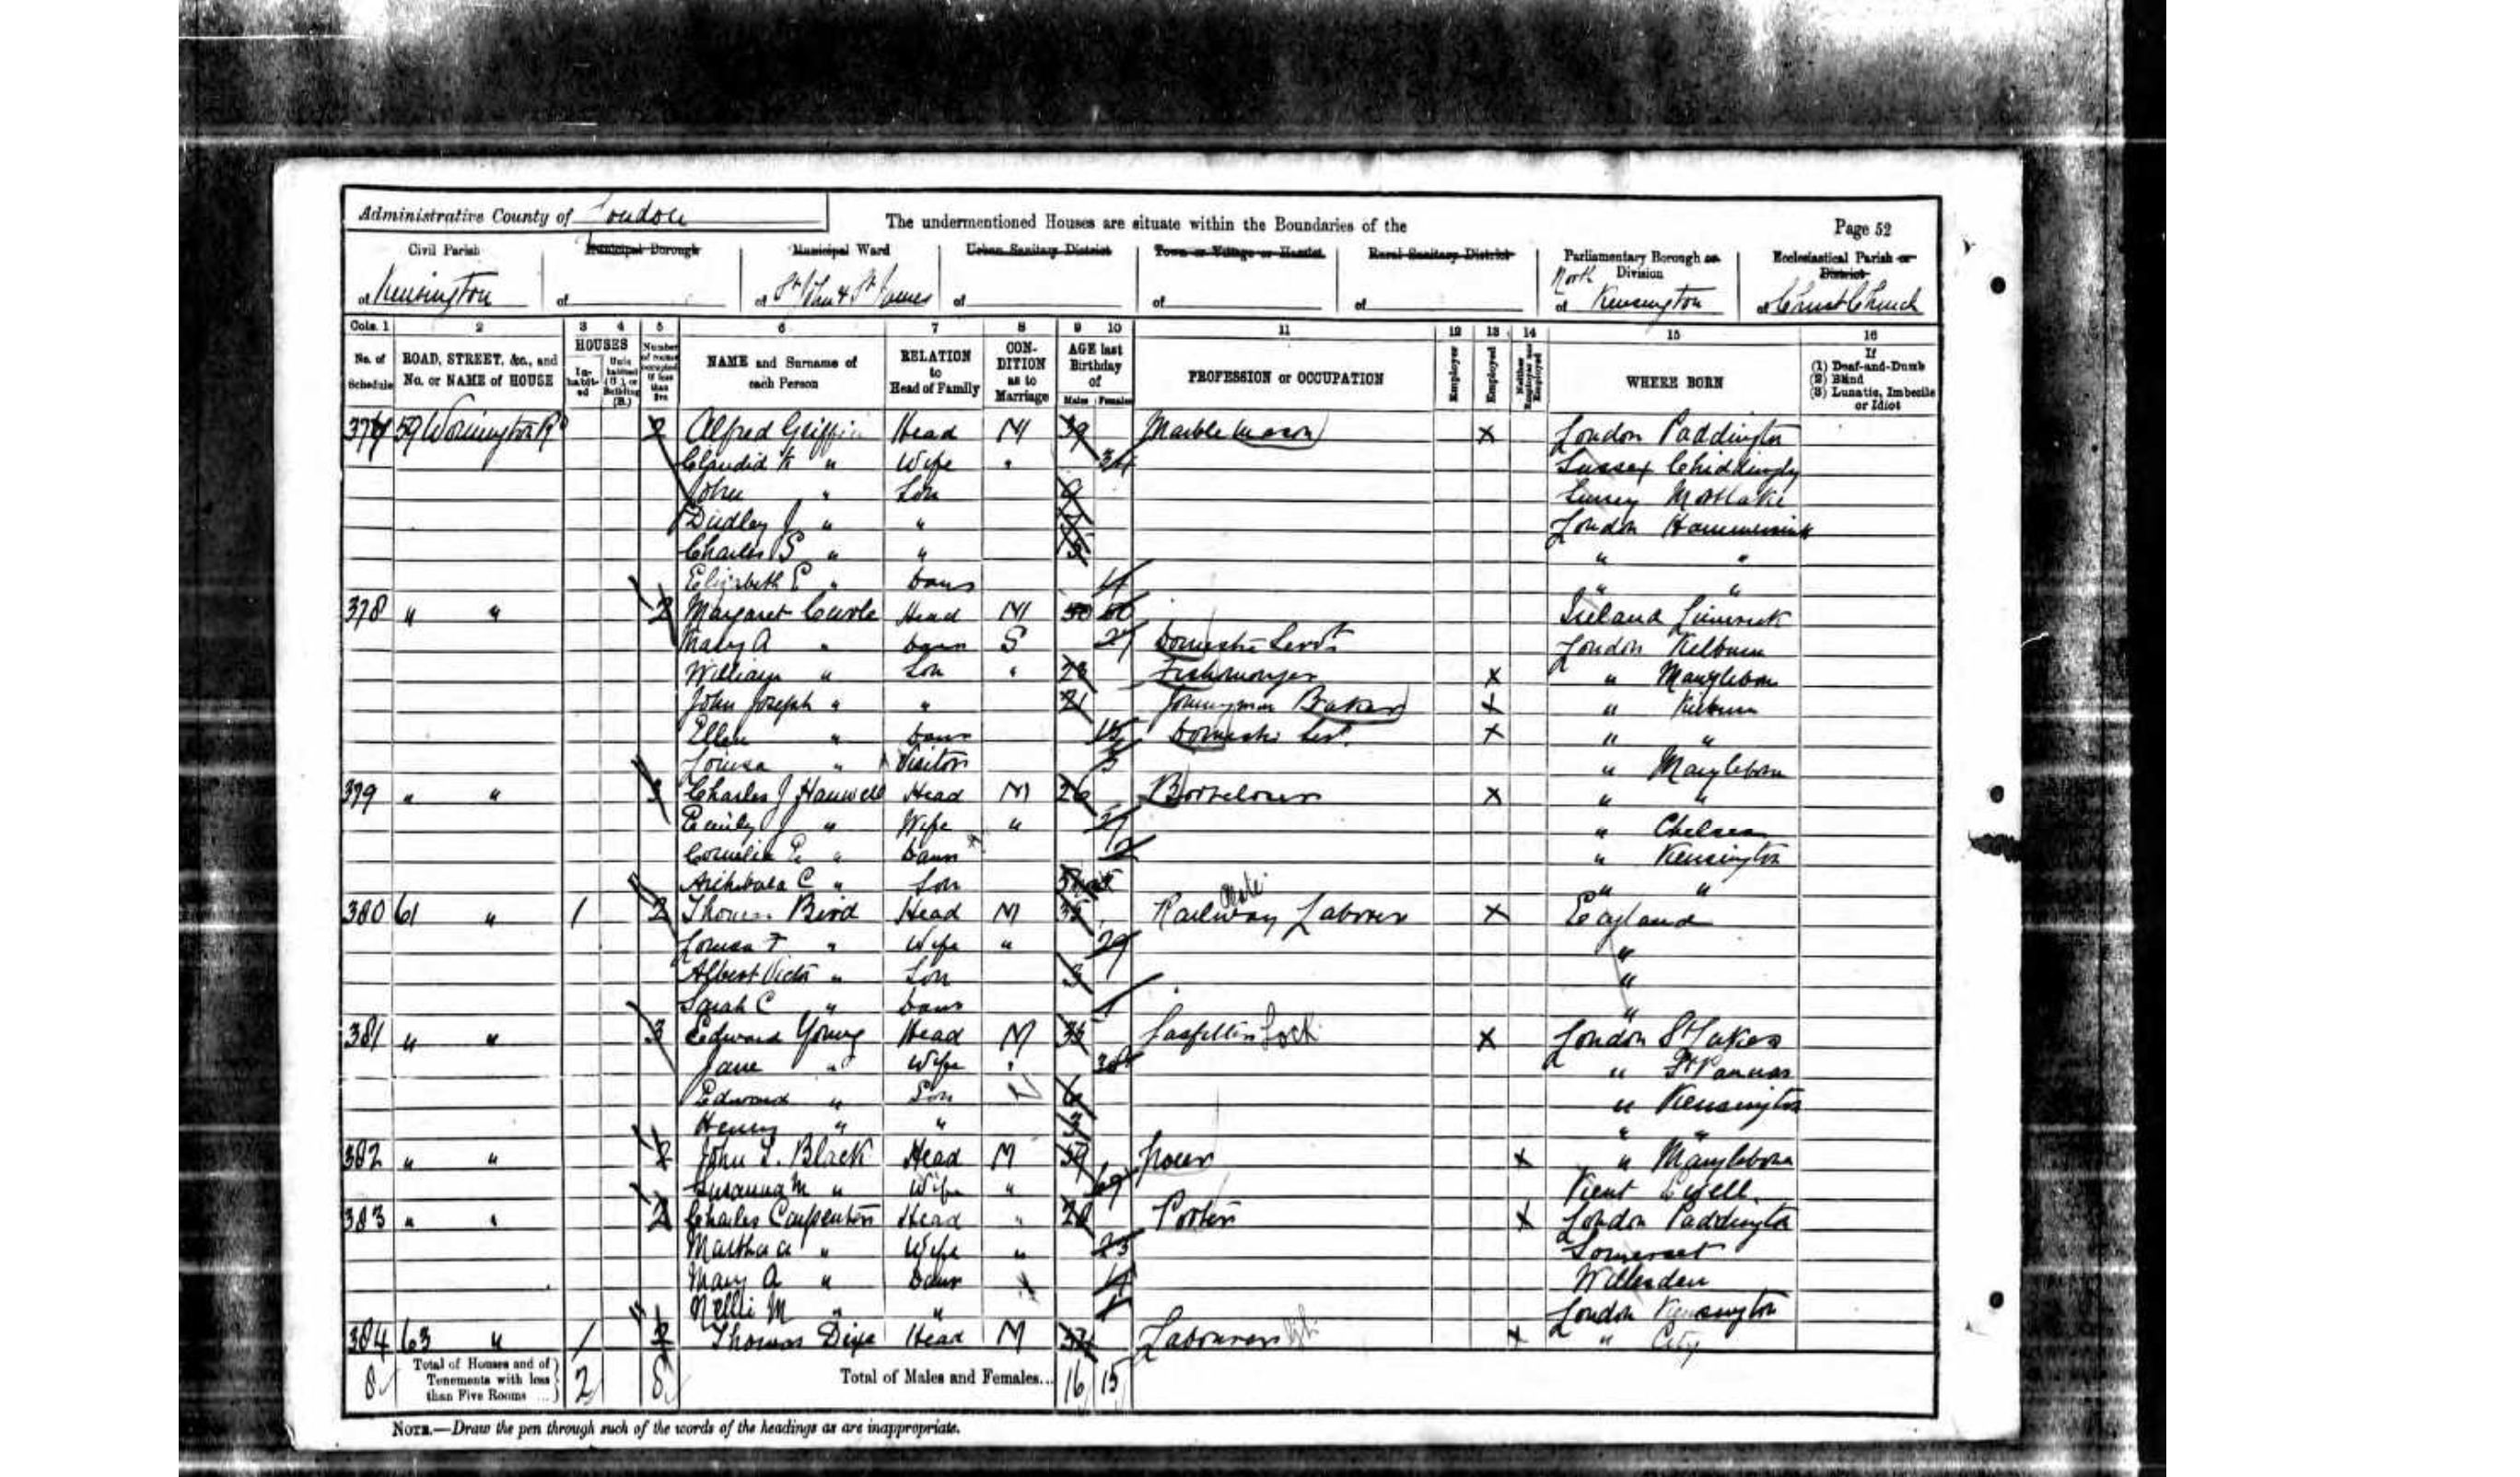 Administrative County of London
The undermentioned Houses are situate within the Boundaries of the
Page 52
Civil Parish
Municipal Borough
Municipal Ward
Urban Sanitary District
Town or Village or Hamlet
Rural Sanitary District
Parliamentary Borough or Division
Ecclesiastical Parish or District
of Kensington
of
of St John & St James
of
of
of
North
of Kensington
of Christ Church
Cols. 1 2 3 4 5 6 7 8 9 10 11 12 13 14 15 16
No. of Schedule
ROAD, STREET, &c., and No. or NAME of HOUSE
HOUSES
In-habit-ed
Unin-habited (U.), or Building (B.)
Number of rooms occupied if less than five
NAME and Surname of each Person
RELATION to Head of Family
CON-DITION as to Marriage
AGE last Birthday of
Males Females
PROFESSION or OCCUPATION
Employer
Employed
Neither Employer nor Employed
WHERE BORN
If
(1) Deaf-and-Dumb
(2) Blind
(3) Lunatic, Imbecile or Idiot
377 59 Wornington Rd 2 Alfred Griffin Head M 39 Marble Mason X London Paddington
" Wife " 34 Sussex Chiddingly
John " Son 9 Surrey Mortlake
Dudley J " " London Hammersmith
Charles S " " 5 " "
Elizabeth E " Daur " "
378 " " 2 Margaret Head M 50 Ireland Limerick
Mary A " Daur S 27 Domestic Servt London Kilburn
William " Son " 23 Fishmonger X " Marylebone
John Joseph " " 21 Journyman Baker X " Kilburn
Ellen " Daur 15 Domestic Ser. X " "
Louisa " Visitor 3 " Marylebone
379 " " 3 Charles J Head M 26 X " "
Emily J " Wife " 27 " Chelsea
Cornelia E " Daur 2 " Kensington
Archibald C " Son " "
380 61 " 1 2 Thomas Bird Head M 35 Railway Laborer X England
Louisa F " Wife " 29 "
Albert Victor " Son 3 "
Sarah C " Daur 1 "
381 " " 3 Edward Young Head M 35 Gasfitter X London St Lukes
Jane " Wife " " St Pancras
Edward " Son 6 " Kensington
Henry " " 3 " "
382 " " 2 John Black Head M 59 Grocer X " Marylebone
Susanna M " Wife " 69 Kent
383 " " 2 Charles Carpenter Head " 28 Porter X London Paddington
Martha A " Wife " 23 Somerset
Mary A " Daur Willesden
Nellie M " " 1 London Kensington
384 63 " 1 2 Thomas Head M Labourer X " City
8 Total of Houses and of Tenements with less than Five Rooms ... 2 8 Total of Males and Females... 16 15
NOTE.—Draw the pen through such of the words of the headings as are inappropriate.